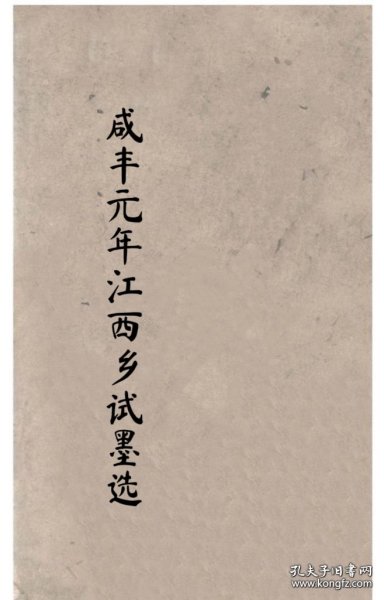 咸丰元年江西乡试墨选
孔夫子旧书网
www.kongfz.com